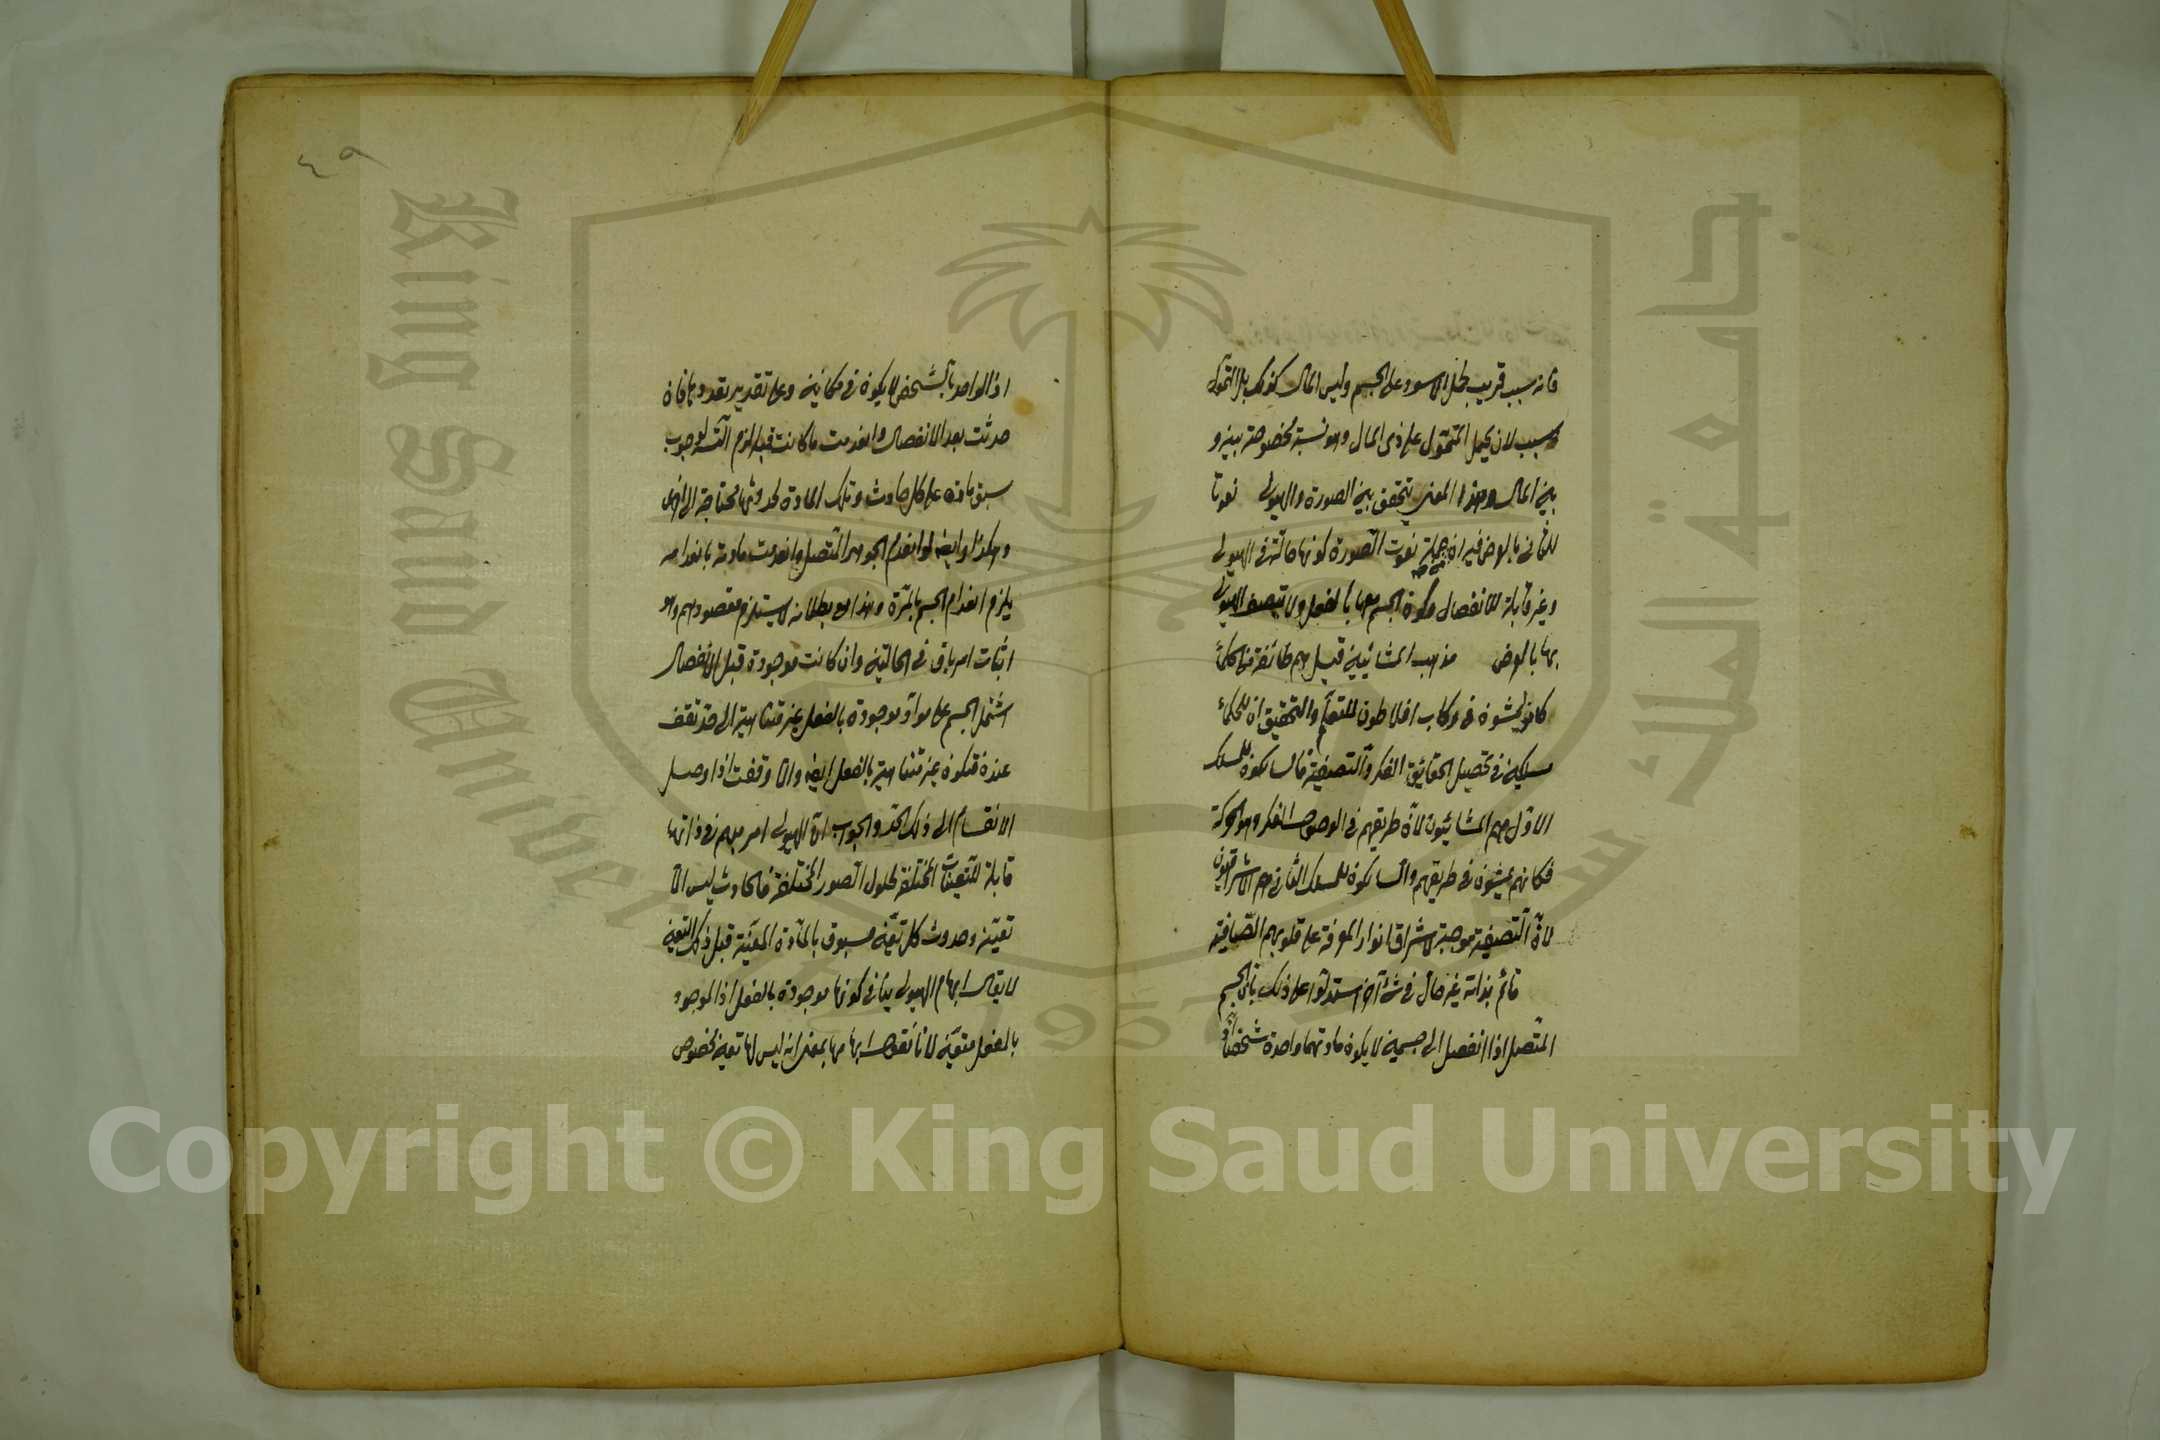 فانه سبب قريب لحمل الاسود على الجسم وليس المال كذلك بل التمول
سبب لان يحمل المتمول على ذى المال وهو نسبة مخصوصة بينه و
بين المال وهذا المعنى يتحقق بين الصورة والهيولى نعوتا
للثانى بالعرض فيه ان من جملة نعوت الصورة كونها حالة فى الهيولى
وغير قابلة للانفصال وكون الجسم معها بالفعل ولا يتصف الهيولى
بها بالعرض مذهب المشائيين قيل هم طائفة من الحكماء
كانوا يمشون فى ركاب افلاطون للتعلم والتحقيق ان للحكماء
مسلكين فى تحصيل الحقايق الفكر والتصفية فالسالكون للمسلك
الاول هم المشائيون لان طريقهم فى الوصول الفكر وهو الحركة
فكانهم يمشون فى طريقهم والسالكون للمسلك الثانى هم الاشراقيون
لان التصفية موجبة لاشراق انوار المعرفة على قلوبهم الصافية
قائم بذاته غير حال فى شئ آخر استدلوا على ذلك بان الجسم
المتصل اذا انفصل الى جسمين لا يكون مادتهما واحدة شخصا
اذ الواحد بالشخص لا يكون فى مكانين وعلى تقدير تعددها فان
حدثت بعد الانفصال وانعدمت ما كانت قبله لزم التسلسل لوجوب
سبق مادة على كل حادث وتلك المادة لحدوثها محتاجة الى اخرى
وهكذا وايضا لو انعدم الجوهر المتصل وانعدمت مادته بانعدامه
يلزم انعدام الجسم بالمرة وهذا مع بطلانه لا يستلزم مقصودهم وهو
اثبات امر باق فى الحالتين وان كانت موجودة قبل الانفصال
اشتمل الجسم على مواد موجودة بالفعل غير متناهية الى حد تقف
عنده فتكون غير متناهية بالفعل ايضا والا وقفت اذا وصل
الانقسام الى ذلك الحد والجواب ان الهيولى امر مبهم فى ذاتها
قابلة للتعينات المختلفة لحلول الصور المختلفة فالحادث ليس الا
تعينه وحدوث كل تعين مسبوق بالمادة المعينة قبل ذلك التعين
لا يقال ابهام الهيولى ينافى كونها موجودة بالفعل اذ الموجود
بالفعل متعين لانا نقول ابهامها بمعنى انه ليس لها تعين مخصوص
٤٩
Copyright © King Saud University
King Saud University
جامعة الملك سعود
1957